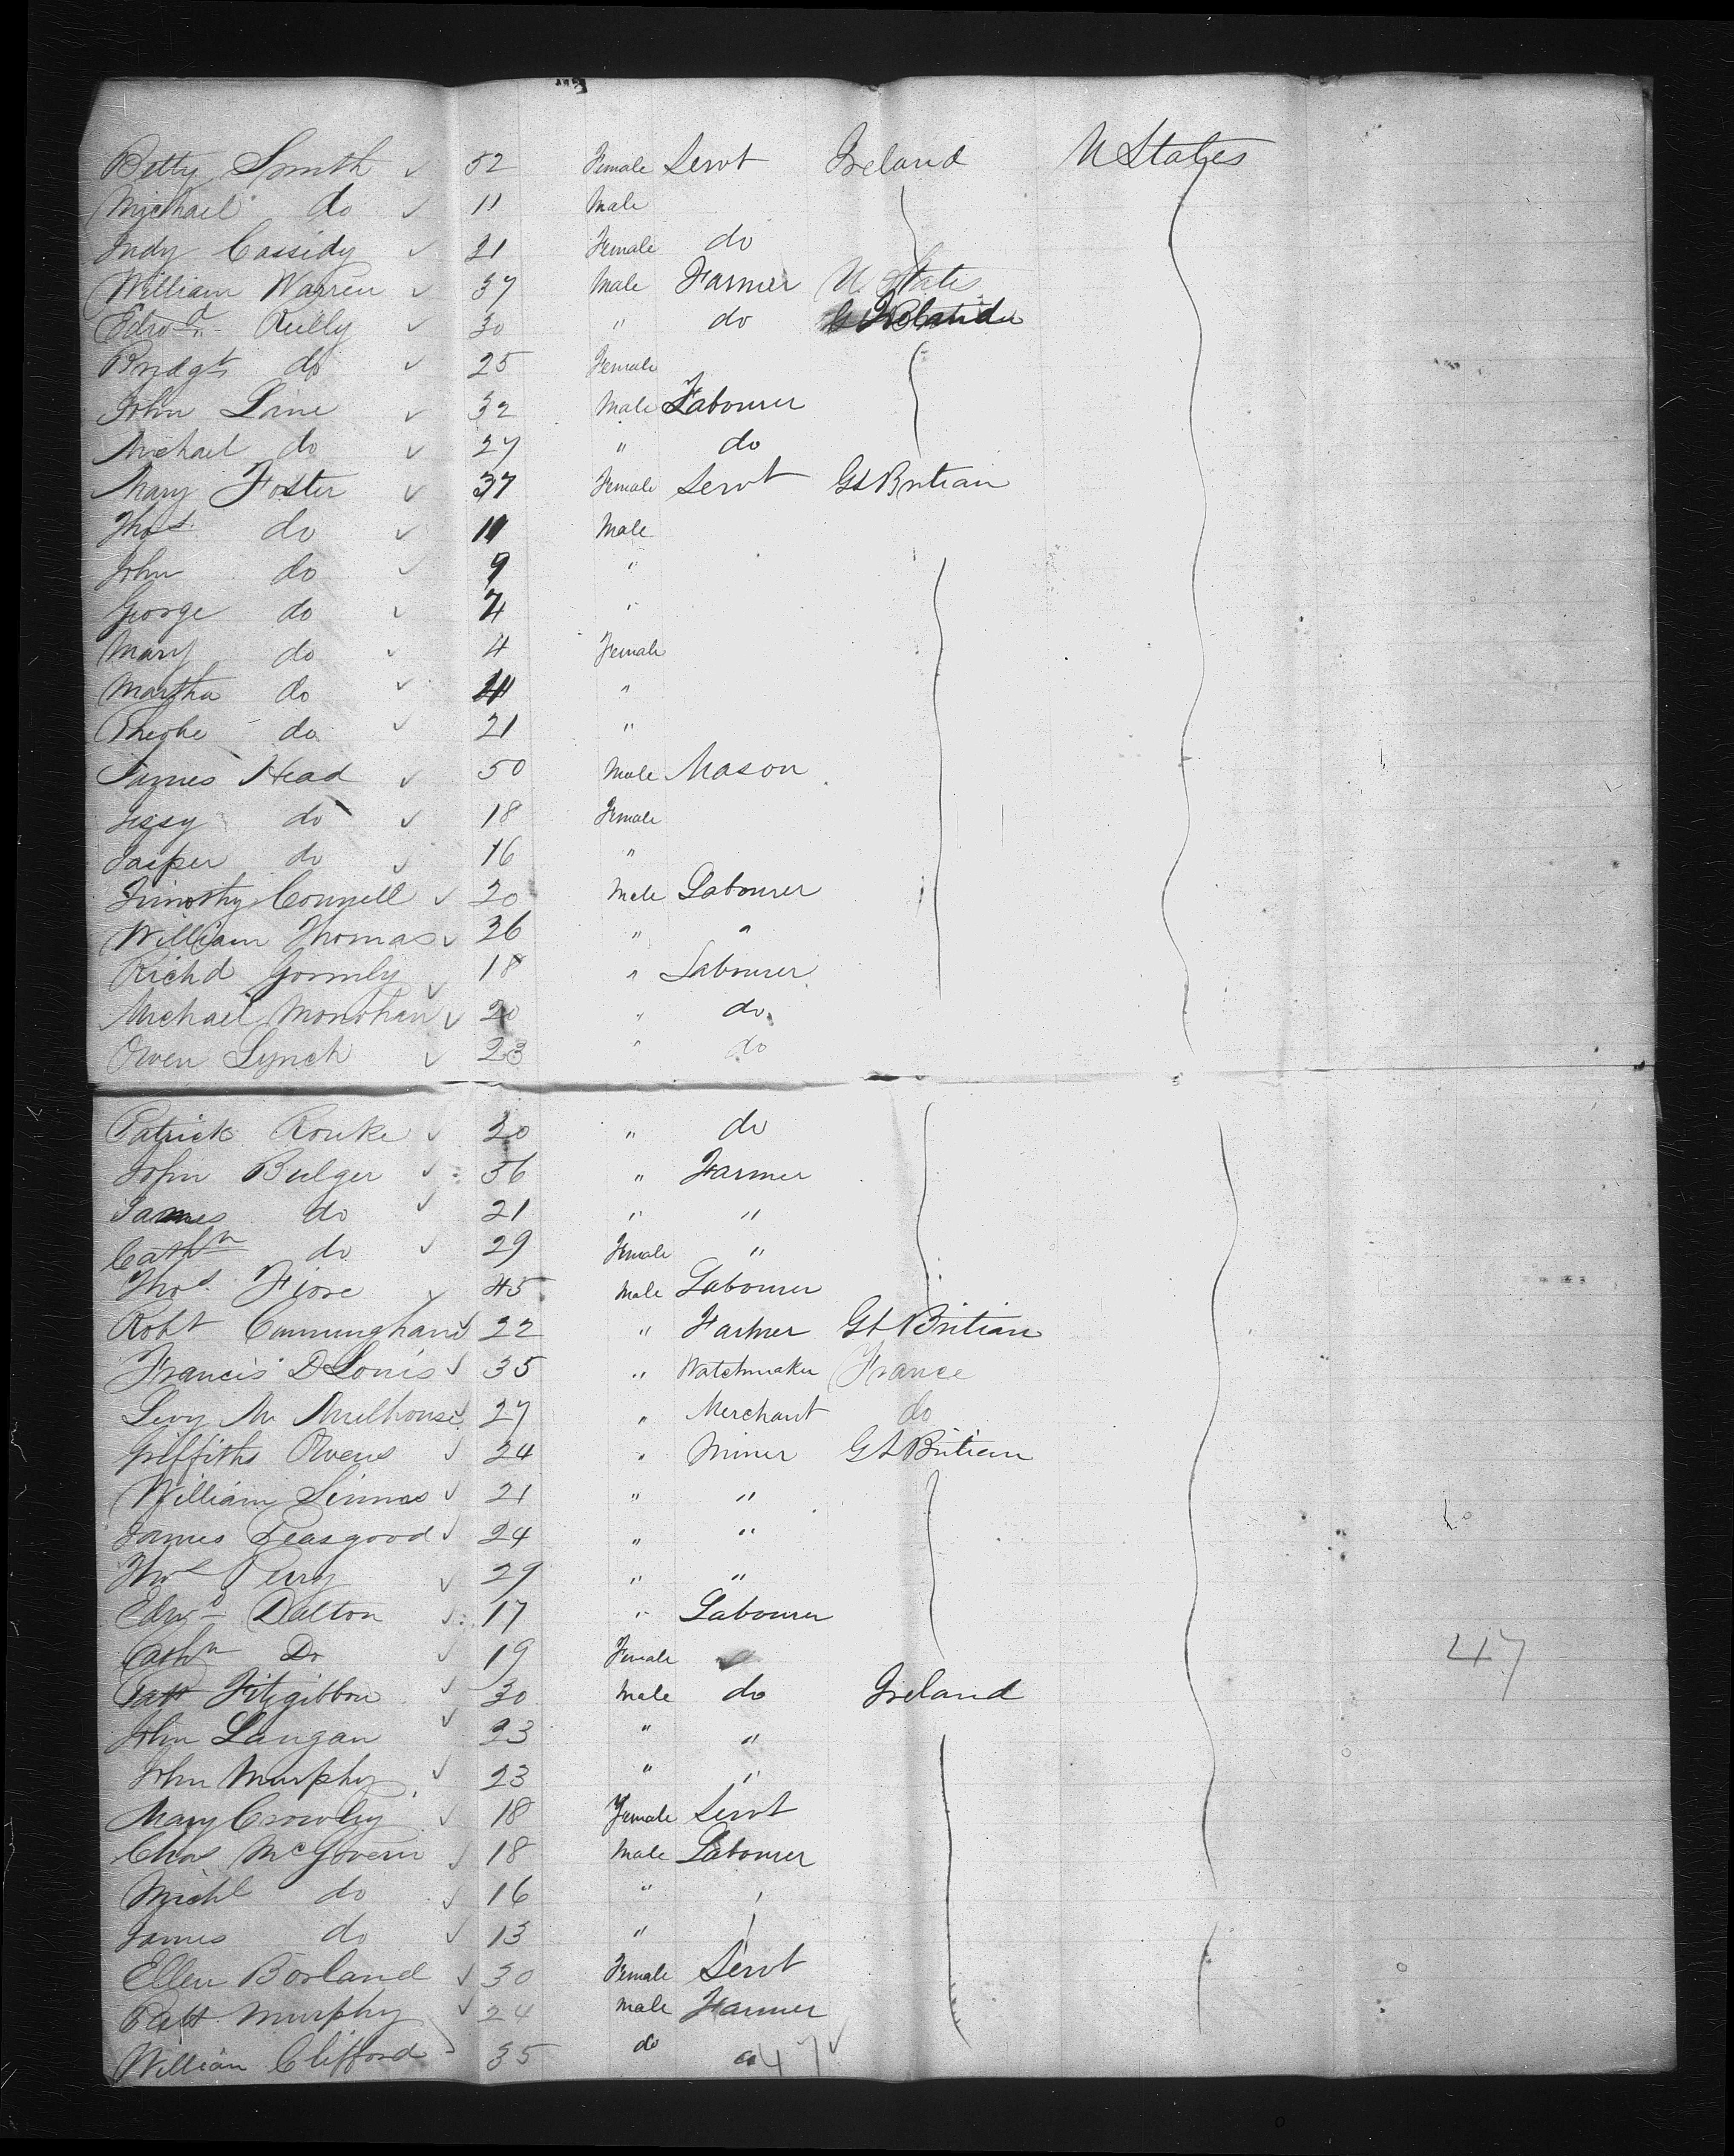 Betty Smith ✓ 52 Female Servt Ireland U States
Michael do ✓ 11 Male
Judy Cassidy ✓ 21 Female do
William Warren ✓ 37 Male Farmer U States
Edwd Reilly ✓ 30 " do Ireland
Bridgt do ✓ 25 Female
John Line ✓ 32 Male Labourer
Michael do ✓ 27 " do
Mary Foster ✓ 37 Female Servt Gt Britian
Thos do ✓ 11 Male
John do ✓ 9 "
George do ✓ 7 "
Mary do ✓ 4 Female
Martha do ✓ "
Pheobe do ✓ 21 "
James Head ✓ 50 Male Mason
Jessy do ✓ 18 Female
Jasper do ✓ 16 "
Timothy Connell ✓ 20 Male Labourer
William Thomas ✓ 26 " "
Richd Gormly ✓ 18 " Labourer
Michael Monohan ✓ 20 " do
Owen Lynch ✓ 23 " do
Patrick Rouke ✓ 20 " do
John Bulger ✓ 56 " Farmer
James do ✓ 21 " "
Cathn do ✓ 29 Female "
Thos Fiore ✓ 45 Male Labourer
Robt Cunningham ✓ 22 " Farmer Gt Britian
Francis D Louis ✓ 35 " Watchmaker France
Levy M Mulhouse ✓ 27 " Merchant do
Griffiths Owens ✓ 24 " Miner Gt Britian
William Simms ✓ 21 " "
James Peasgood ✓ 24 " "
Thos Perry ✓ 29 " "
Edwd Dalton ✓ 17 " Labourer
Cathn Do ✓ 19 Female 47
Patt Fitzgibbon ✓ 30 Male do Ireland
John Langan ✓ 23 " "
John Murphy ✓ 23 " "
Mary Crowley ✓ 18 Female Servt
Chas McGovern ✓ 18 Male Labourer
Michl do ✓ 16 "
James do ✓ 13 "
Ellen Borland ✓ 30 Female Servt
Patt Murphy ✓ 24 Male Farmer
William Clifford 35 do 47 ✓